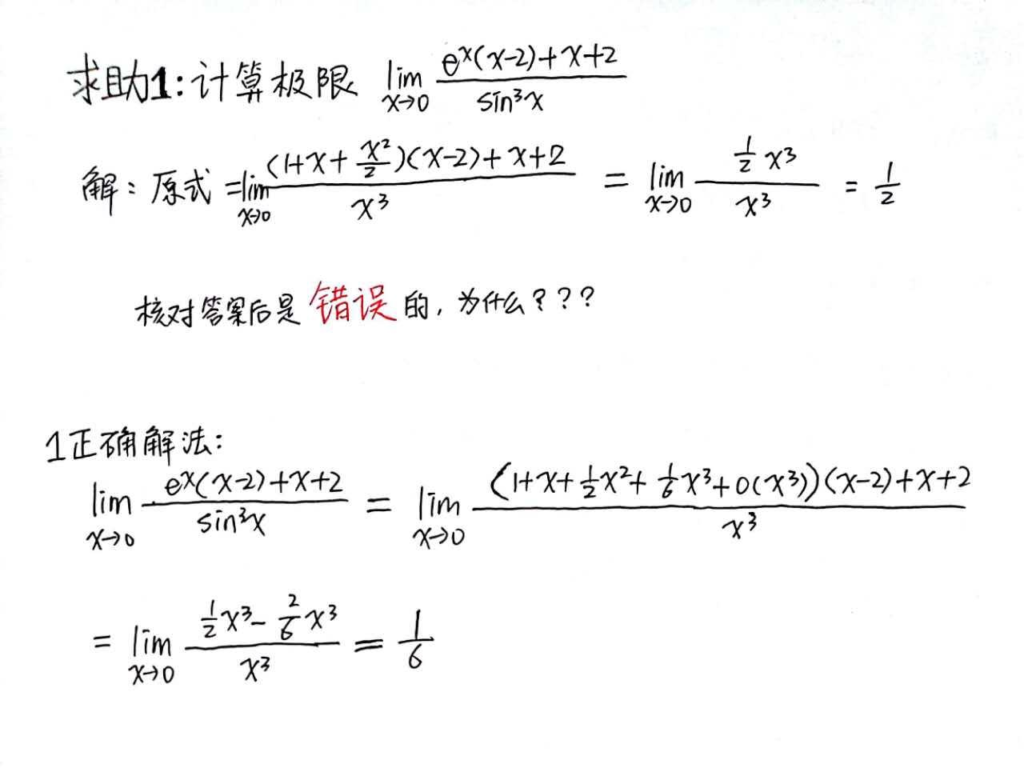 求助1:计算极限 lim x→0 e^x(x-2)+x+2 / sin³x
解:原式=lim x→0 (1+x+x²/2)(x-2)+x+2 / x³ = lim x→0 ½x³ / x³ = ½
核对答案后是错误的,为什么???
1正确解法:
lim x→0 e^x(x-2)+x+2 / sin³x = lim x→0 (1+x+½x²+⅙x³+o(x³))(x-2)+x+2 / x³
= lim x→0 ½x³-2/6x³ / x³ = 1/6